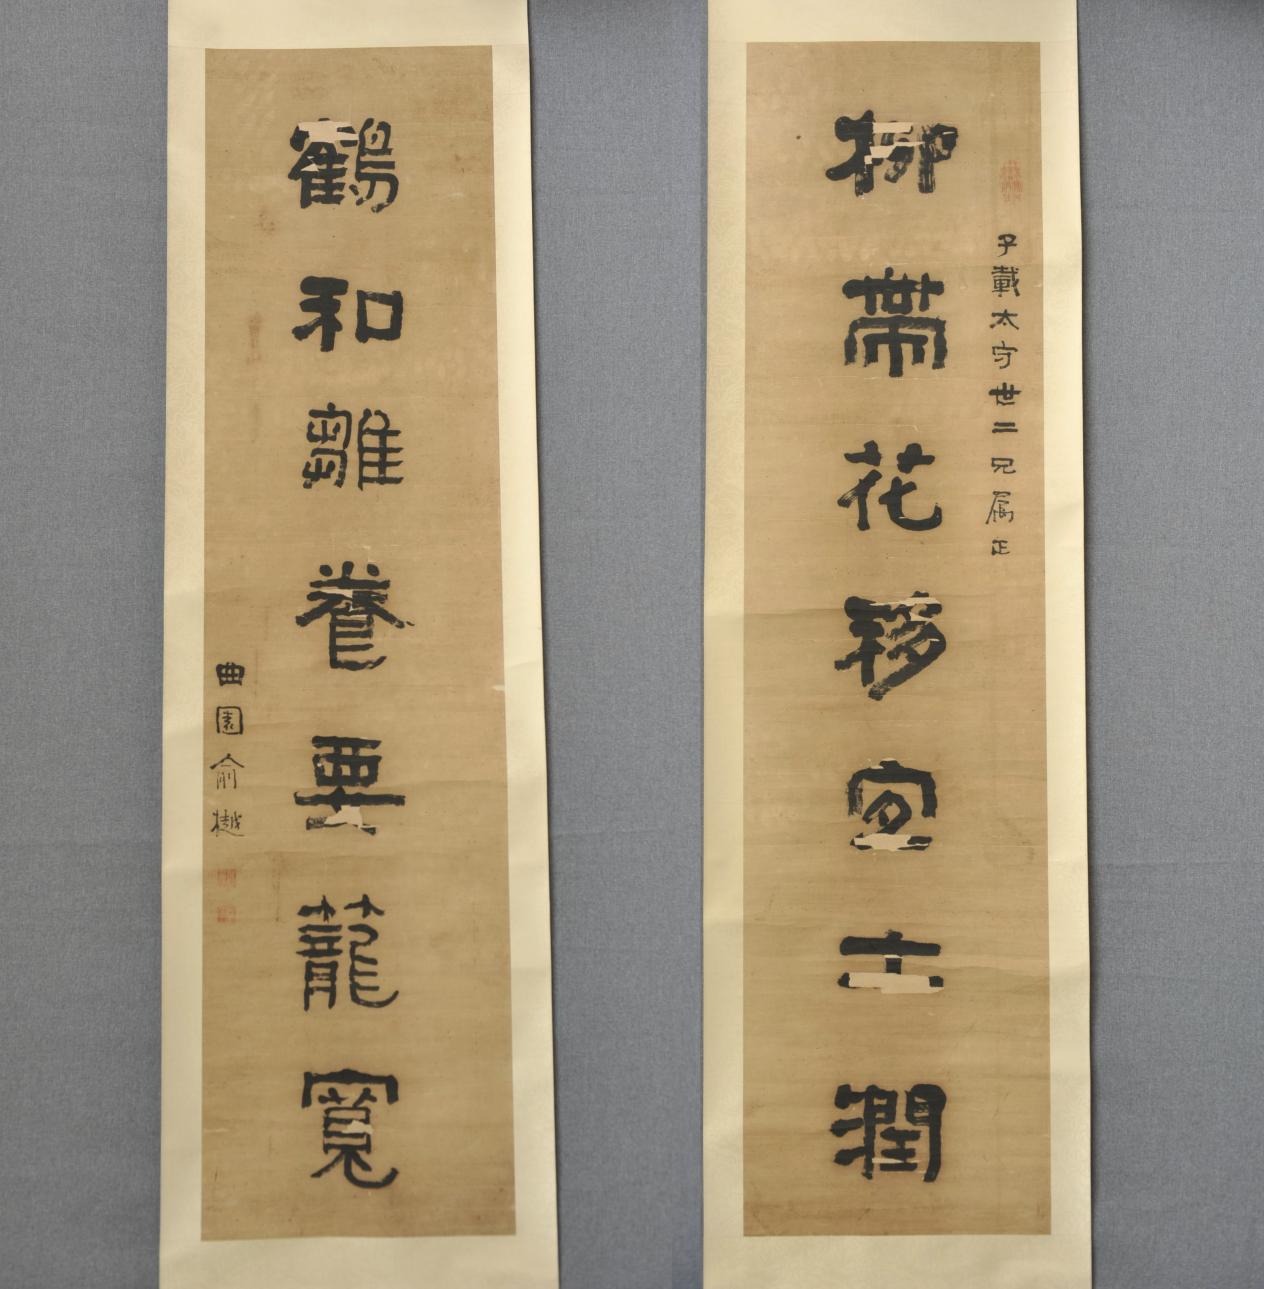 子載太守世二兄属正
柳帶花移宜土潤
鶴和雛養要蘢寬
曲園俞樾